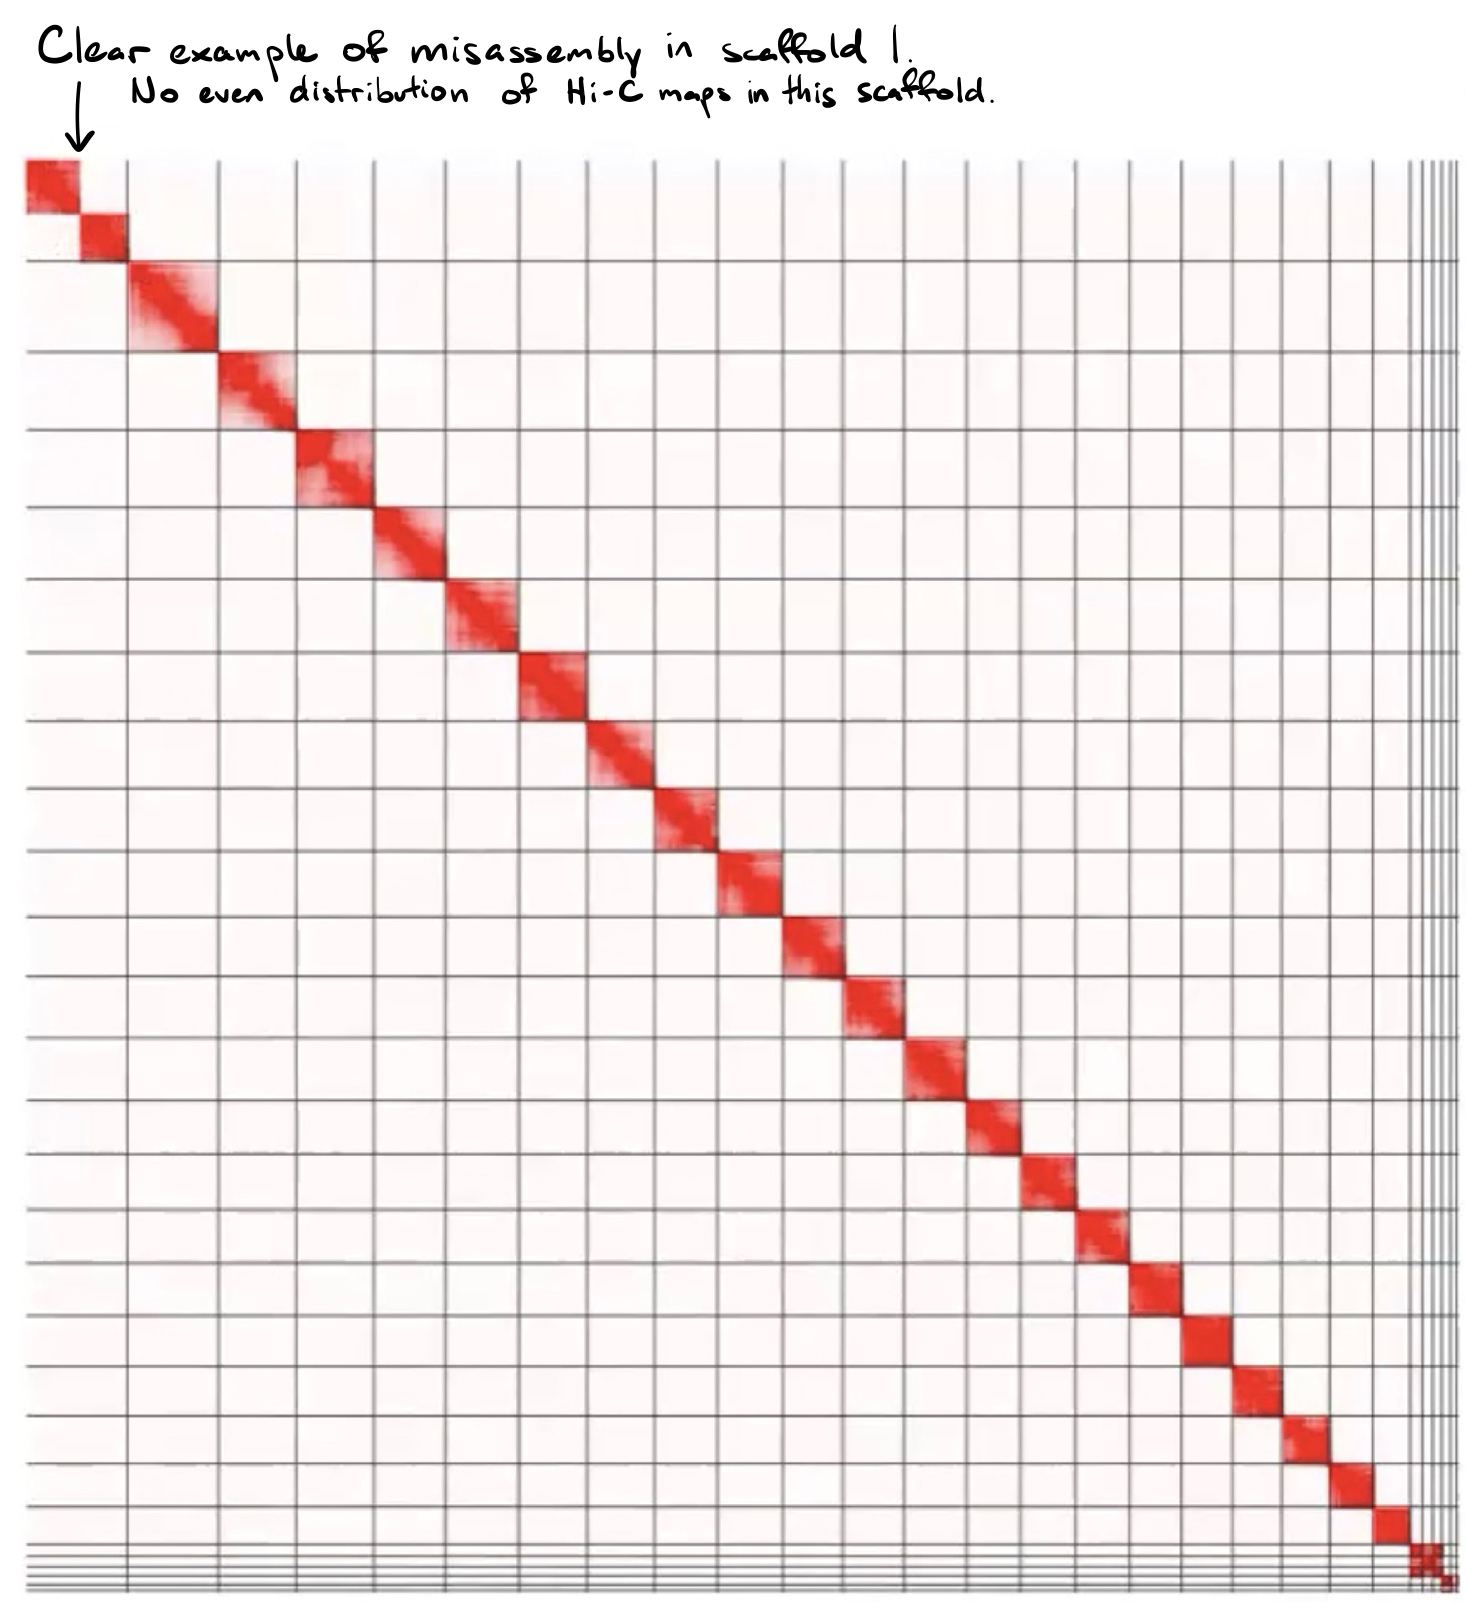 Clear example of misassembly in scaffold 1.
No even distribution of Hi-C maps in this scaffold.